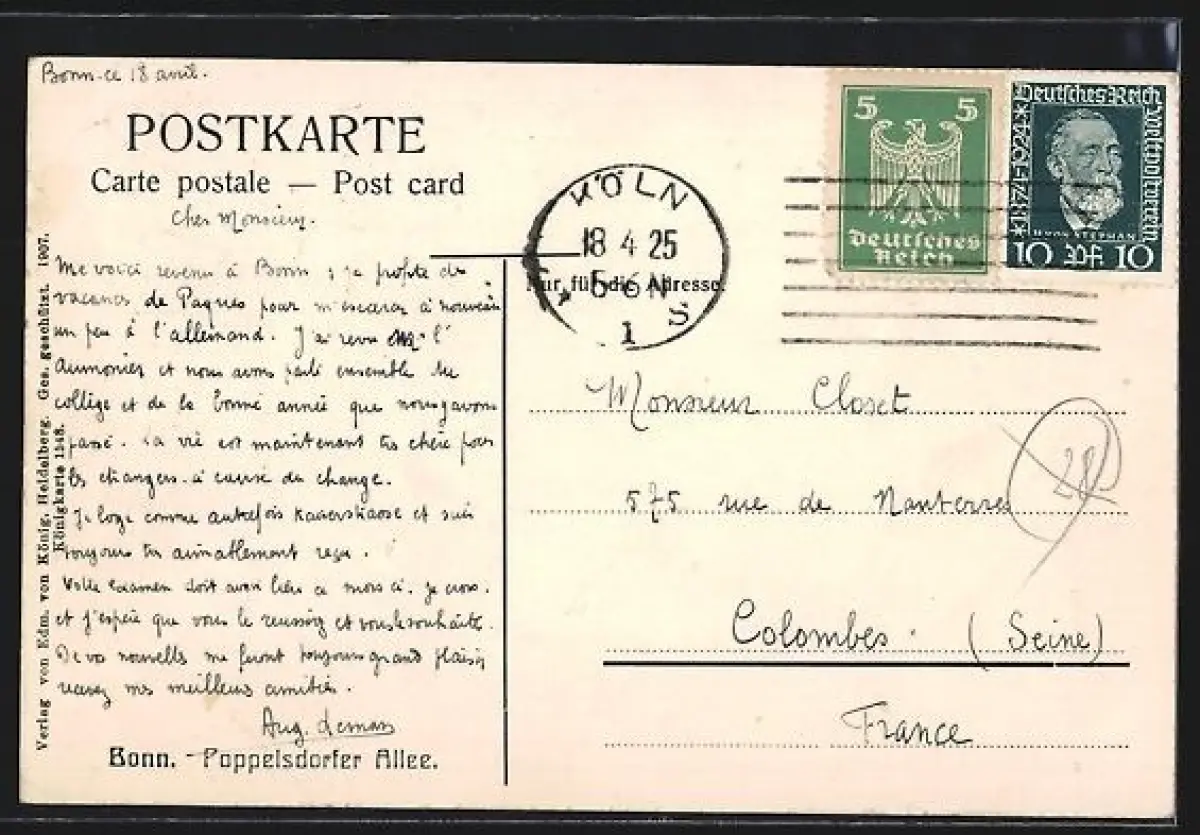 Bonn-ce 18 avril.
POSTKARTE
Carte postale — Post card
Cher Monsieur.
Me voici revenu à Bonn ; je profite des
vacances de Paques pour m'exercer à nouveau
un peu à l'allemand. J'ai revu l'
Aumonier et nous avons parlé ensemble du
collège et de la bonne année que nous y avons
passé. La vie est maintenant très chère pour
les étrangers à cause du change.
Je loge comme autrefois Kaiserstrasse et suis
toujours très aimablement reçu.
Votre examen doit avoir lieu ce mois ci. je crois.
et j'espère que vous le reussirez et vous le souhaite.
De vos nouvelles me feront toujours grand plaisir
recevez mes meilleurs amitiés.
Aug. Lemass
Bonn. - Poppelsdorfer Allee.
Verlag von Edm. von König, Heidelberg. Ges. geschützt. 1907.
Königkarte 1348.
KÖLN
18 4 25
5-6 N
1 S
Nur für die Adresse.
5 5
Deutsches
Reich
Deutsches Reich
Weltpostverein
1874-1924
H. VON STEPHAN
10 Pf 10
Monsieur Closet
575 rue de Nanterres
28
Colombes. (Seine)
France